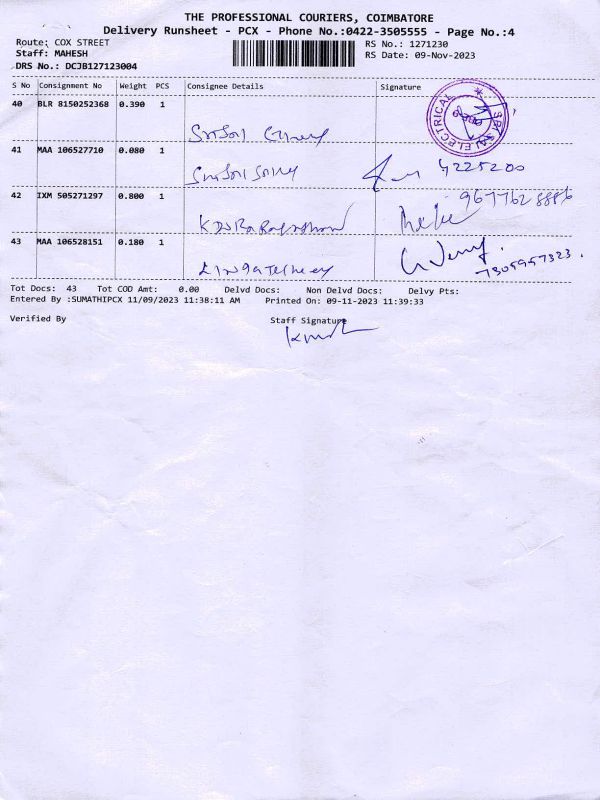 THE PROFESSIONAL COURIERS, COIMBATORE
Delivery Runsheet - PCX - Phone No.:0422-3505555 - Page No.:4
Route: COX STREET
RS No.: 1271230
Staff: MAHESH
RS Date: 09-Nov-2023
DRS No.: DCJB127123004
S No Consignment No Weight PCS Consignee Details Signature
40 BLR 8150252368 0.390 1
SRI SAI ELECTRICAL
41 MAA 106527710 0.080 1
4225200
42 IXM 505271297 0.800 1
9677628886
43 MAA 106528151 0.180 1
7305957323.
Tot Docs: 43 Tot COD Amt: 0.00 Delvd Docs: Non Delvd Docs: Delvy Pts:
Entered By :SUMATHIPCX 11/09/2023 11:38:11 AM Printed On: 09-11-2023 11:39:33
Verified By Staff Signature